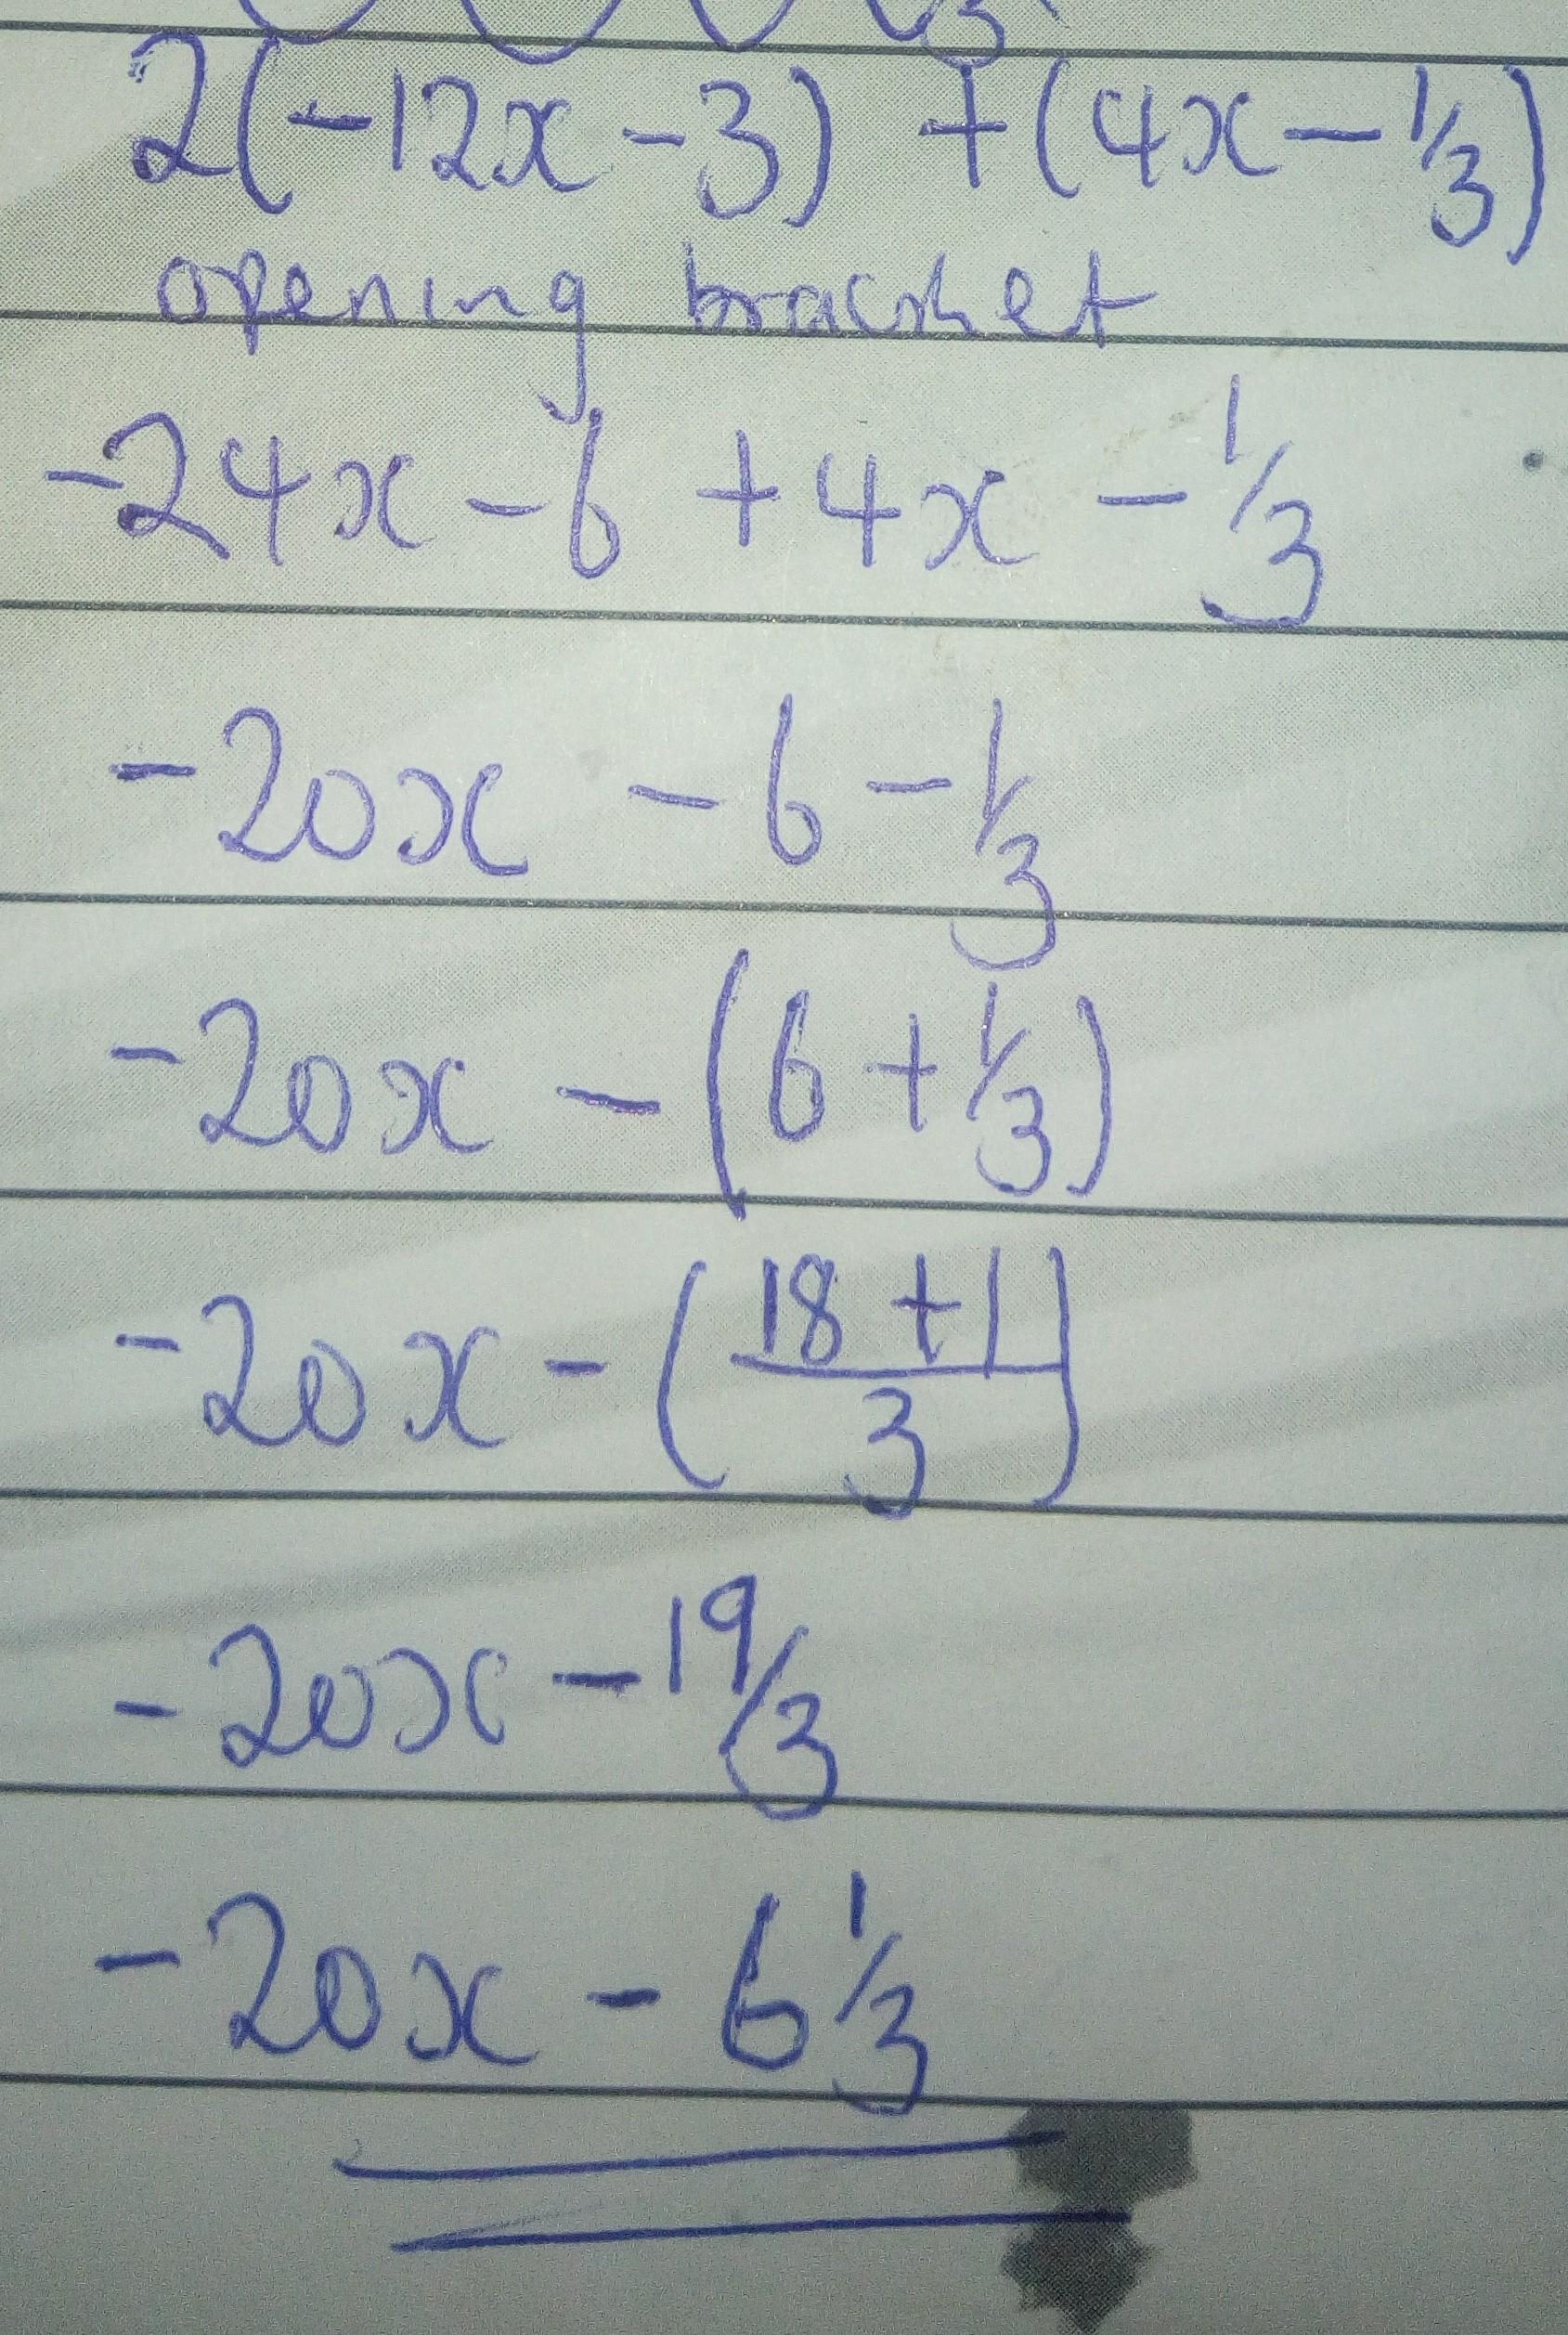 2(-12x-3) +(4x-1/3)
opening bracket
-24x-6+4x-1/3
-20x-6-1/3
-20x-(6+1/3)
-20x-(18+1/3)
-20x-19/3
-20x-6 1/3